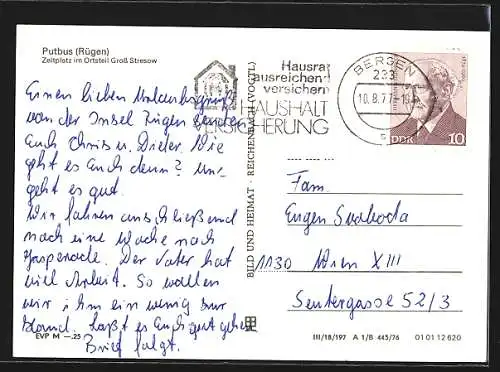 Putbus (Rügen)
Zeltplatz im Ortsteil Groß Stresow
Einen lieben Urlaubsgruß
von der Insel Rügen senden
Euch Chris u. Dieter. Wie
geht es Euch denn? Uns
geht es gut.
Wir fahren anschließend
noch eine Woche nach
Der Vater hat
viel Arbeit. So wollen
wir ihm ein wenig zur
Hand. Laßt es Euch gut gehen
Brief folgt.
EVP M —.25
BILD UND HEIMAT · REICHENBACH (VOGTL)
Hausrat
ausreichend
versichern
HAUSHALT
VERSICHERUNG
BERGEN
233
10.8.77
DDR
10
Fam.
Eugen Svoboda
1130 Wien XIII
Sentergasse 52/3
III/18/197 A 1/B 445/76 01 01 12 620